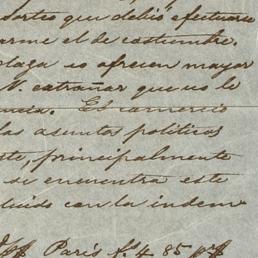 sorteo que debió efectuarse
arme el de costumbre.
plaga se ofrecen mayor
V. extrañar que no le
encia. El comercio
las asuntos politicos
ste, principalmente
se encuentra este
luido con la indem
París 4 85